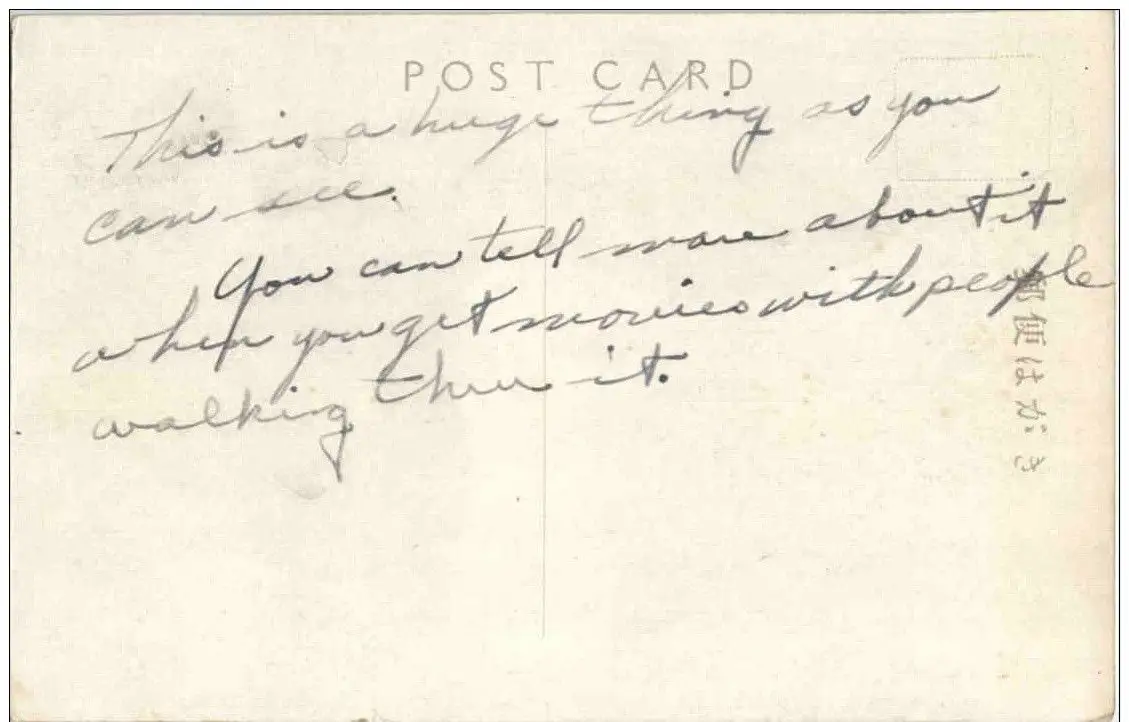 POST CARD
This is a huge thing as you
can see.
You can tell more about it
when you get movies with people
walking thru it.
郵便はがき